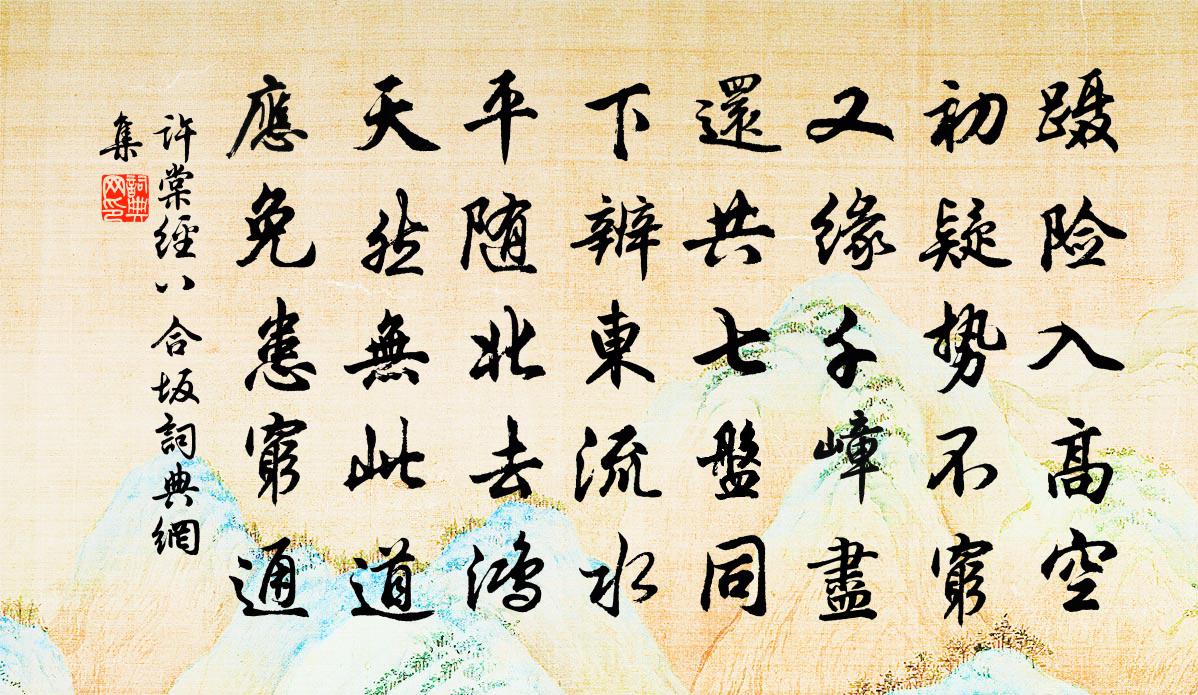 蹑险入高空
初疑势不窮
又緣千嶂盡
還共七盤同
下辨東流水
平随北去鸿
天然無此道
應免患窮通
許棠經八合坂詞典網
集
詞典
网印